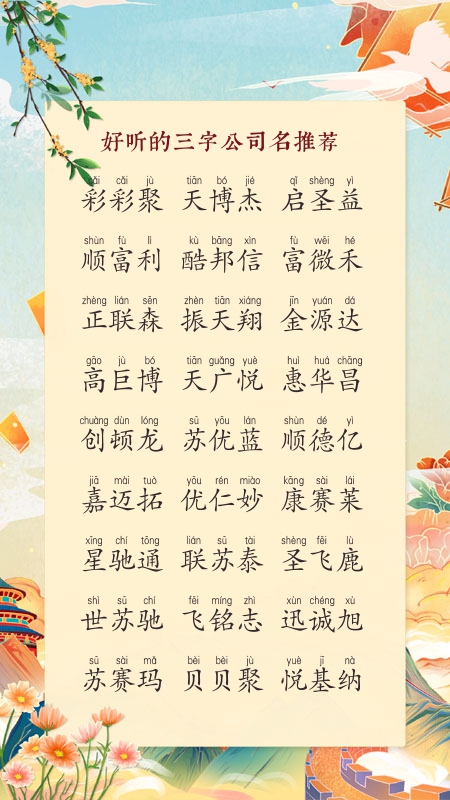 好听的三字公司名推荐
cǎi cǎi jù tiān bó jié qǐ shèng yì
彩彩聚 天博杰 启圣益
shùn fù lì kù bāng xìn fù wēi hé
顺富利 酷邦信 富微禾
zhèng lián sēn zhèn tiān xiáng jīn yuán dá
正联森 振天翔 金源达
gāo jù bó tiān guǎng yuè huì huá chāng
高巨博 天广悦 惠华昌
chuàng dùn lóng sū yōu lán shùn dé yì
创顿龙 苏优蓝 顺德亿
jiā mài tuò yōu rén miào kāng sài lái
嘉迈拓 优仁妙 康赛莱
xīng chí tōng lián sū tài shèng fēi lù
星驰通 联苏泰 圣飞鹿
shì sū chí fēi míng zhì xùn chéng xù
世苏驰 飞铭志 迅诚旭
sū sài mǎ bèi bèi jù yuè jī nà
苏赛玛 贝贝聚 悦基纳